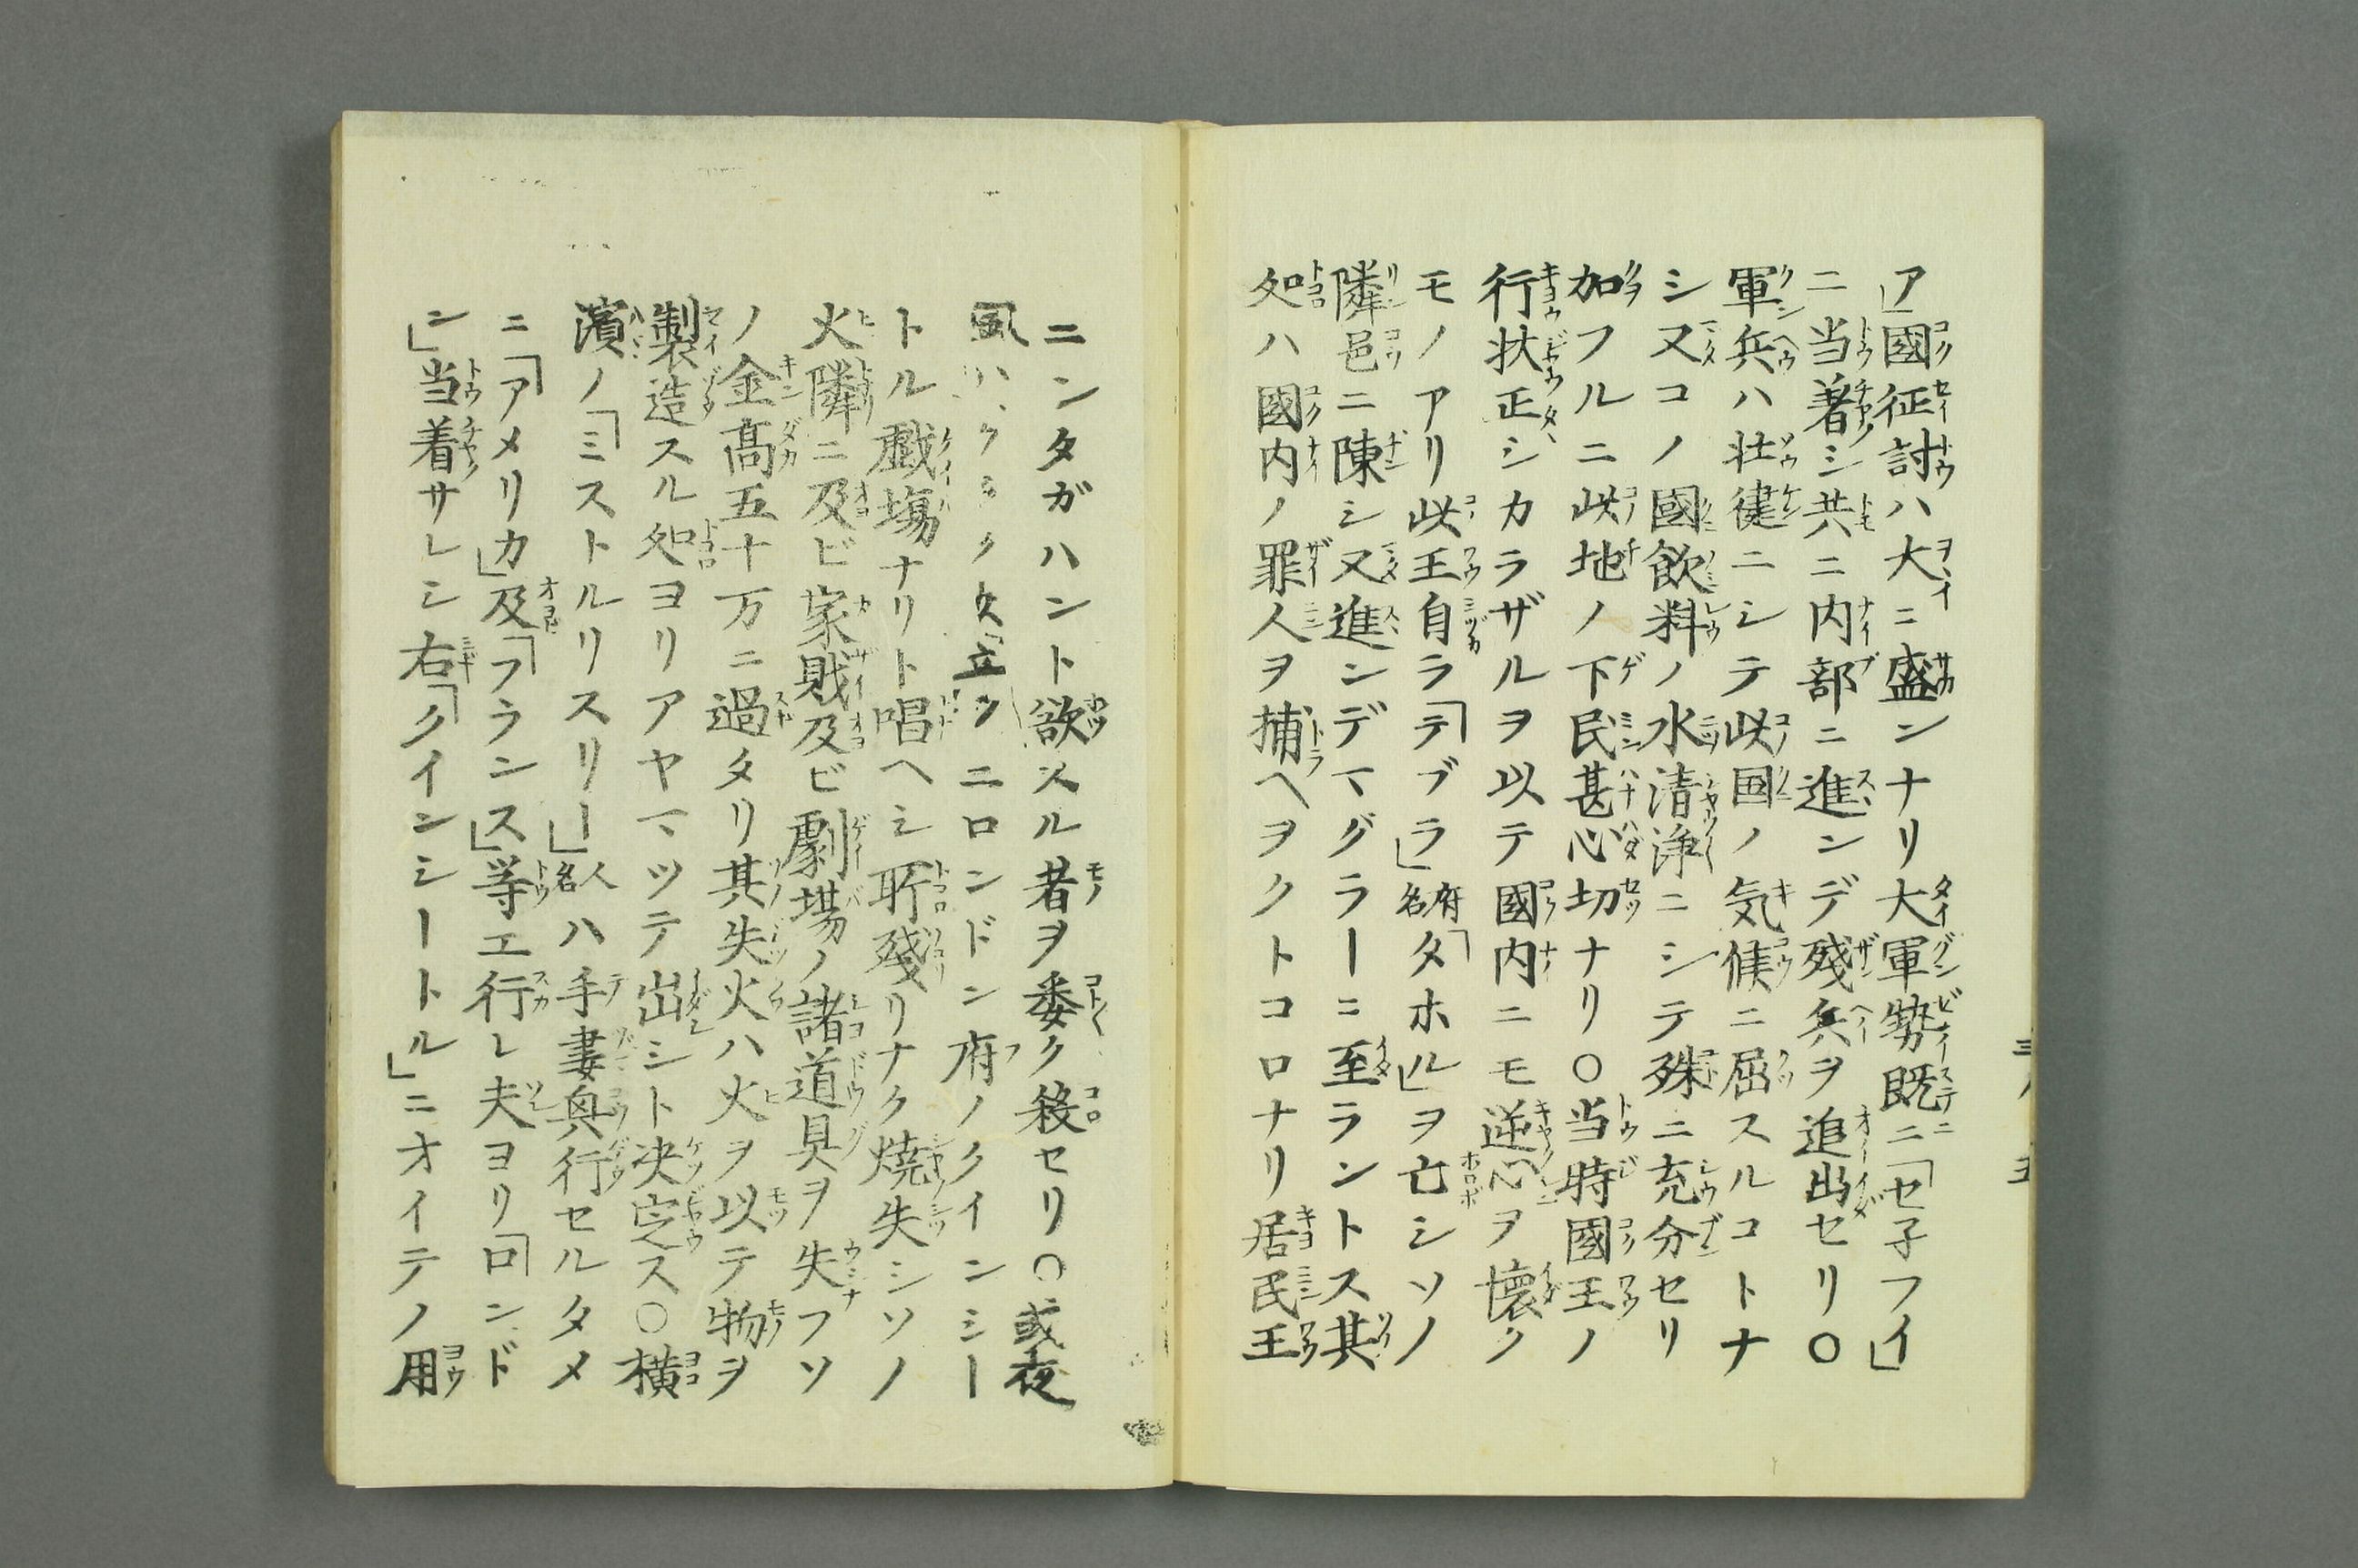 ア」國征討ハ大ニ盛ンナリ大軍勢既ニ「セ子フイ」
ニ当着シ共ニ内部ニ進ンデ殘兵ヲ追出セリ〇
軍兵ハ壮健ニシテ此国ノ気候ニ屈スルコトナ
シ又コノ國飲料ノ水清浄ニシテ殊ニ充分セリ
加フルニ此地ノ下民甚心切ナリ〇当時國王ノ
行状正シカラザルヲ以テ國内ニモ逆心ヲ懐ク
モノアリ此王自ラ「テブラ」府名「タホル」ヲ亡シソノ
隣邑ニ陳シ又進ンデマグラーニ至ラントス其
処ハ國内ノ罪人ヲ捕ヘヲクトコロナリ居民王
ニンタガハント欲スル者ヲ委ク殺セリ〇或夜
風ハ ニロンドン府ノクインシー
トル戯塲ナリト唱ヘシ所殘リナク焼失シソノ
火隣ニ及ビ家財及ビ劇場ノ諸道具ヲ失フソ
ノ金高五十万ニ過タリ其失火ハ火ヲ以テ物ヲ
製造スル処ヨリアヤマッテ出シト决定ス〇横
濱ノ「ミストルリスリー」人名ハ手妻興行セルタメ
ニ「アメリカ」及「フランス」等エ行レ夫ヨリ「ロンド
ン」当着サレシ右「クインシートル」ニオイテノ用